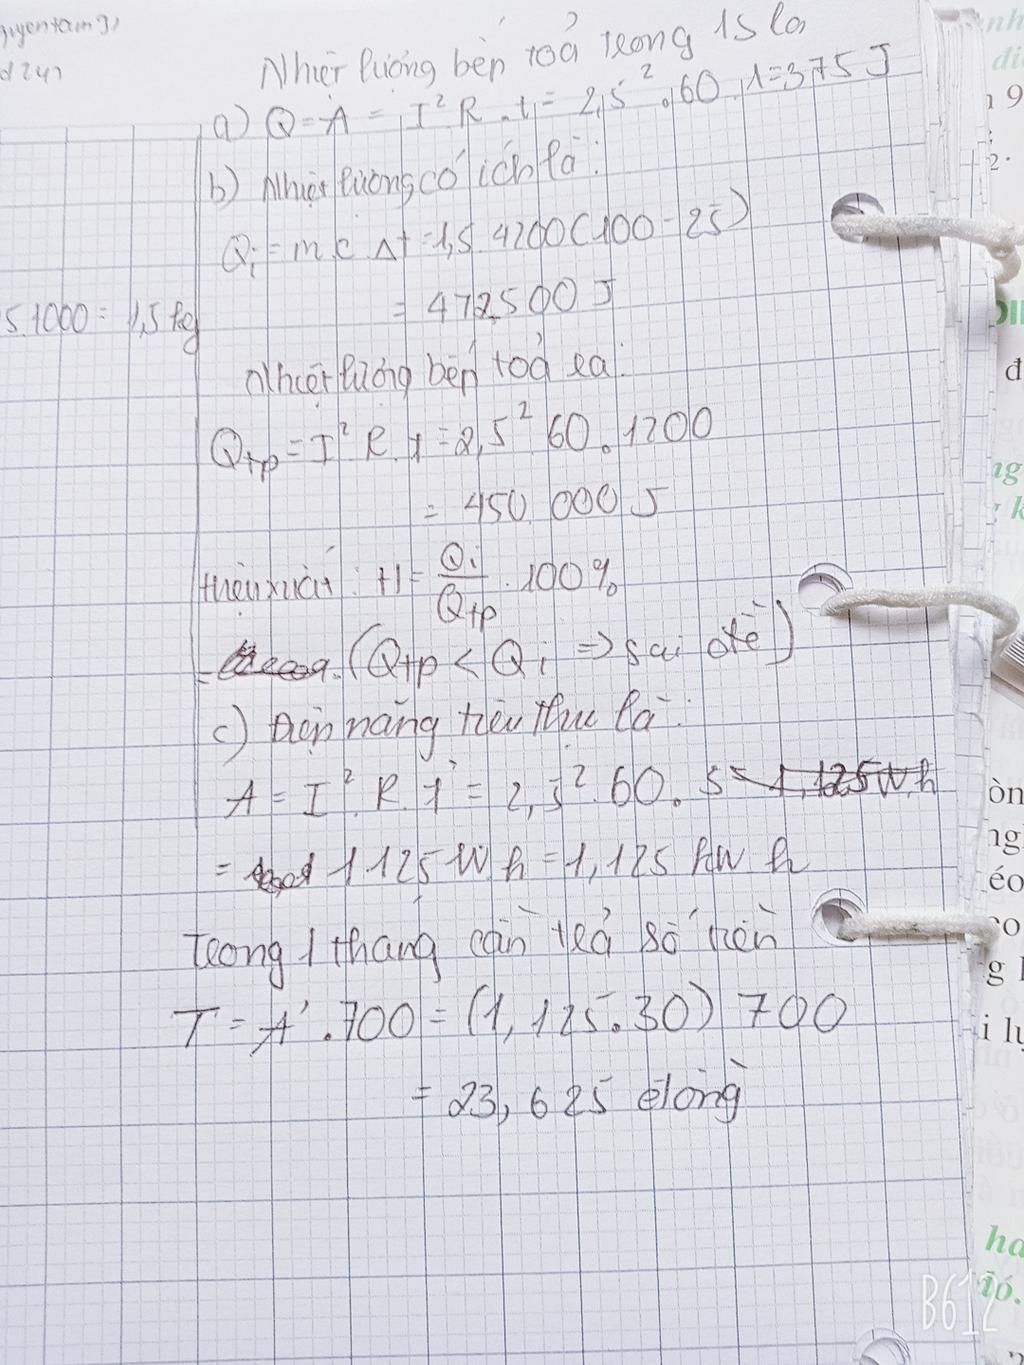 Nhiệt lượng bếp toả trong 1s là
a) Q = A = I².R.t = 2,5².60.1 = 375 J
b) Nhiệt lượng có ích là:
Qi = m.c.Δt = 1,5.4200(100-25)
= 472500 J
5.1000 = 1,5 kg
Nhiệt lượng bếp toả ra:
Qtp = I².R.t = 2,5².60.1200
= 450.000 J
Hiệu xuất: H = Qi/Qtp.100%
(Qtp < Qi => sai đề)
c) Điện năng tiêu thụ là:
A = I².R.t = 2,5².60.
= 1125 W h = 1,125 kW h
Trong 1 tháng cần trả số tiền
T = A'.700 = (1,125.30) 700
= 23,625 đồng
ha
đó.
B612